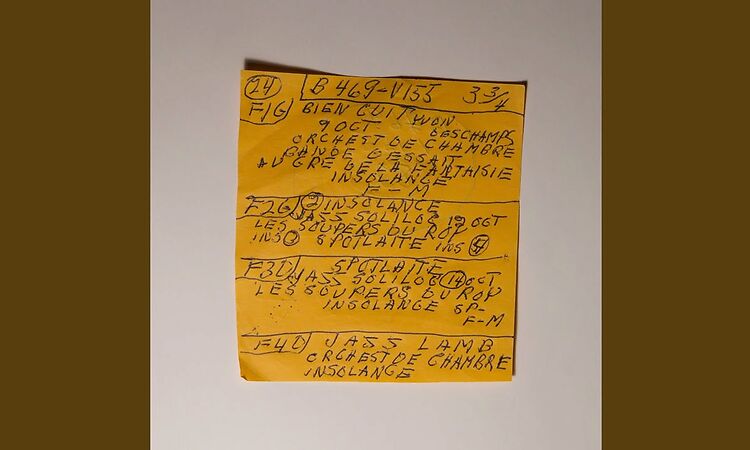 24 B 469-V155 3 3/4
F1G BIEN CUIT YVON
9 OCT DESCHAMPS
ORCHEST DE CHAMBRE
BANDE DESSAIT
AU GRE DE LA FANTAISIE
INSOLANGE
F-M
F2G INSOLANGE
JASS SOLILOG 19 OCT
LES SOUPERS DU ROY
INS SPOTLAITE INS
F3D SPOTLAITE
JASS SOLILOG OCT
LES SOUPERS DU ROY
INSOLANGE SP-
F-M
F4D JASS LAMB
ORCHEST DE CHAMBRE
INSOLANGE